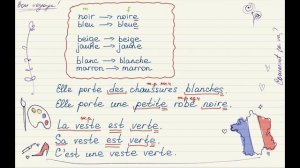 Bon voyage!
m f
noir → noire
bleu → bleue
beige → beige
jaune → jaune
blanc → blanche
marron → marron
Elle porte des chaussures blanches.
Elle porte une petite robe noire.
La veste est verte.
Sa veste est verte.
C'est une veste verte.
Comment ça va?